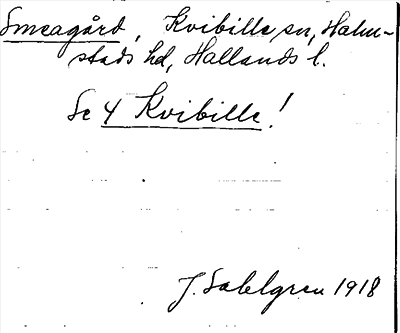 Smeagård, Kvibille sn, Halm-
stads hd, Hallands l.
Se 4 Kvibille!
J. Sahlgren 1918